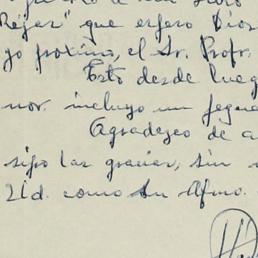 que espero Dios
yo próximo, el Sr. Profr.
Esto desde lueg
nor. incluyo un peque
Agradezco de a
sipo las gracias, sin
Ud. como su Afmo.